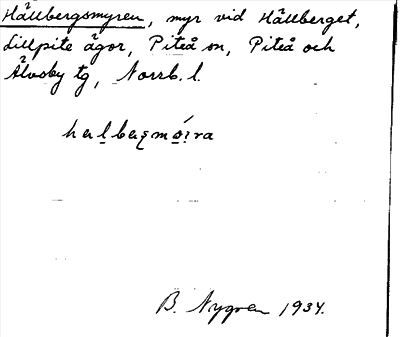 Hällbergsmyren, myr vid Hällberget,
Lillpite ägor, Piteå sn, Piteå och
Älvsby tg, Norrb. l.
B. Nygren 1934.